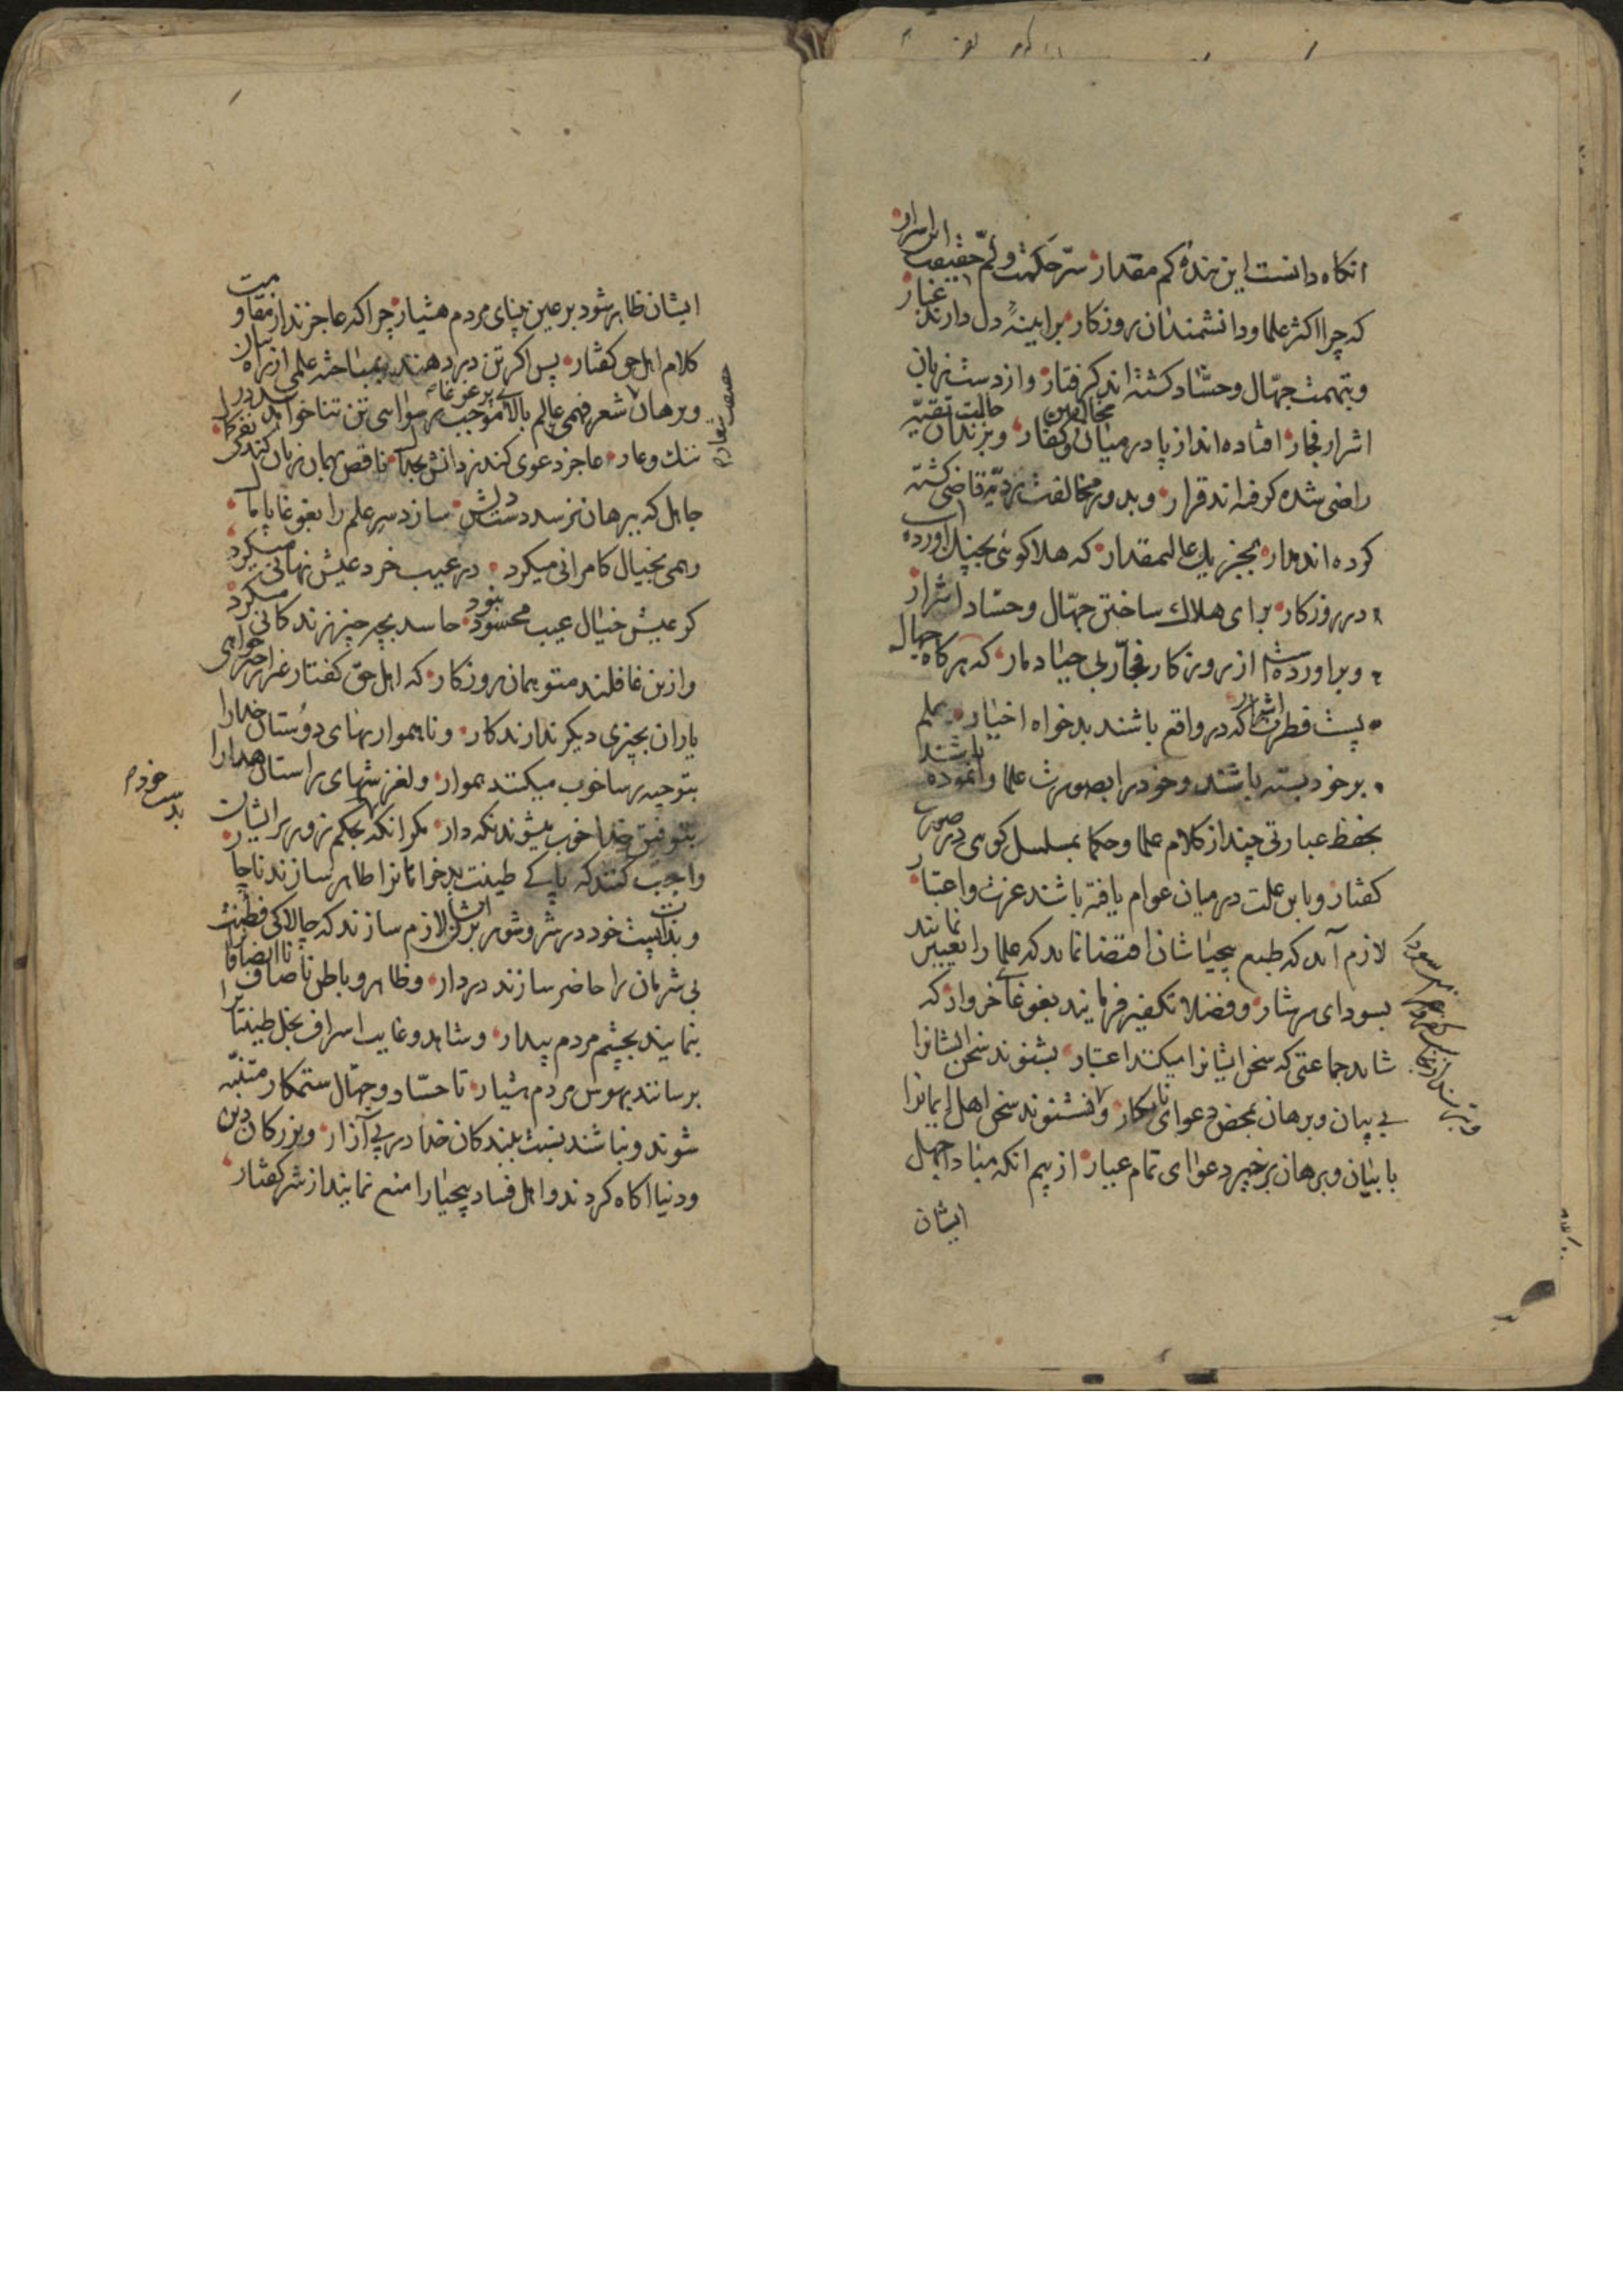 انکاه دانست این بندهٔ کم مقدار سرّ حکمت و لمّ حقیقت این اسرار
که چرا اکثر علما و دانشمندان روزکار بر ایینهٔ دل دارند غبار
و بتهمت جهّال و حسّاد کشته اند کرفتار و از دست زبان
اشرار فجار افتاده اند از پا در میان مخالفین و کفار و بزندان حالت تقیّه
راضی شده کرفته اند قرار و بدور مخالفت
کرده اند مدار بجز یک عالیمقدار که هلاکوئی بچنک اورده
در روزکار برای هلاک ساختن جهّال و حسّاد اشرار
و براورده است از روزکار فجّار بی حیا دمار که هرکاه جهال
پست فطرت اشرار که در واقع باشند بدخواه اخیار بعلم
بر خود بسته باشند و خود را بصورت علما وانموده باشند
بحفظ عبارتی چند از کلام علما و حکما بمسلسل کوئی در صورت
کفتار و باین علت در میان عوام یافته باشند عزت و اعتبار
لازم آمد که طبع بیحیا شان اقتضا نماید که علما را تعییر نمایند
بسودای سرشار و فضلا را تکفیر فرمایند بغوغای خروار که
شاید جماعتی که سخن ایشانرا میکنند اعتبار بشنوند سخن ایشانرا
بی بیان و برهان بمحض دعوای نابکار و نشنوند سخن اهل ایمانرا
با بیان و برهان بر خیر دعوای تمام عیار از بیم انکه مبادا جهل
ایشان
ایشان ظاهر شود بر عین بینای مردم هشیار چرا که عاجزند از مقاومت
کلام اهل حق کفتار پس اکر تن در دهند بمباحثه علمی از راه بیان
و برهان شعر فهمی عالم بالا موجب رسوایی تن تنا خواهد
ننک و عار عاجز دعوی کند ز دانش بجدل ناقص همان زبان کند
جاهل که ببرهان نرسد دست دلش سازد سر علم را بغوغا پامال
وهمی بخیال کامرانی میکرد در غیب خرد عیش نهانی میکرد
کر عیش خیال عیب محسود نبود حاسد بچه چیز زندکانی میکرد
و ازین غافلند متوهمان روزکار که اهل حق کفتار غیر از خیرخواهی
یاران بچیزی دیکر ندارند کار و ناهمواریهای دوستان خدا را
بتوجیه رسا خوب میکنند هموار و لغزشهای راستان هدا را
بتوفیق خدا خوب میشوند نکه دار مکر انکه بحکم زور بر ایشان
واجب کنند که پاکی طینت بدخواهانرا ظاهر سازند ناچار
و بذات پست خود در شر و شور بر ایشان لازم سازند که چالاکی فطنت
بی شرمان را حاضر سازند در دار و ظاهر و باطن ناصاف
بنمایند بچشم مردم بیدار و شاهد و غایب اسراف بخل طینتان را
برسانند بهوش مردم هشیار تا حسّاد و جهّال ستمکار متنبّه
شوند و نباشند نسبت ببندکان خدا در پی آزار و بزرکان دین
و دنیا اکاه کردند و اهل فساد بیحیا را منع نمایند از شر کفتار
بدست خود